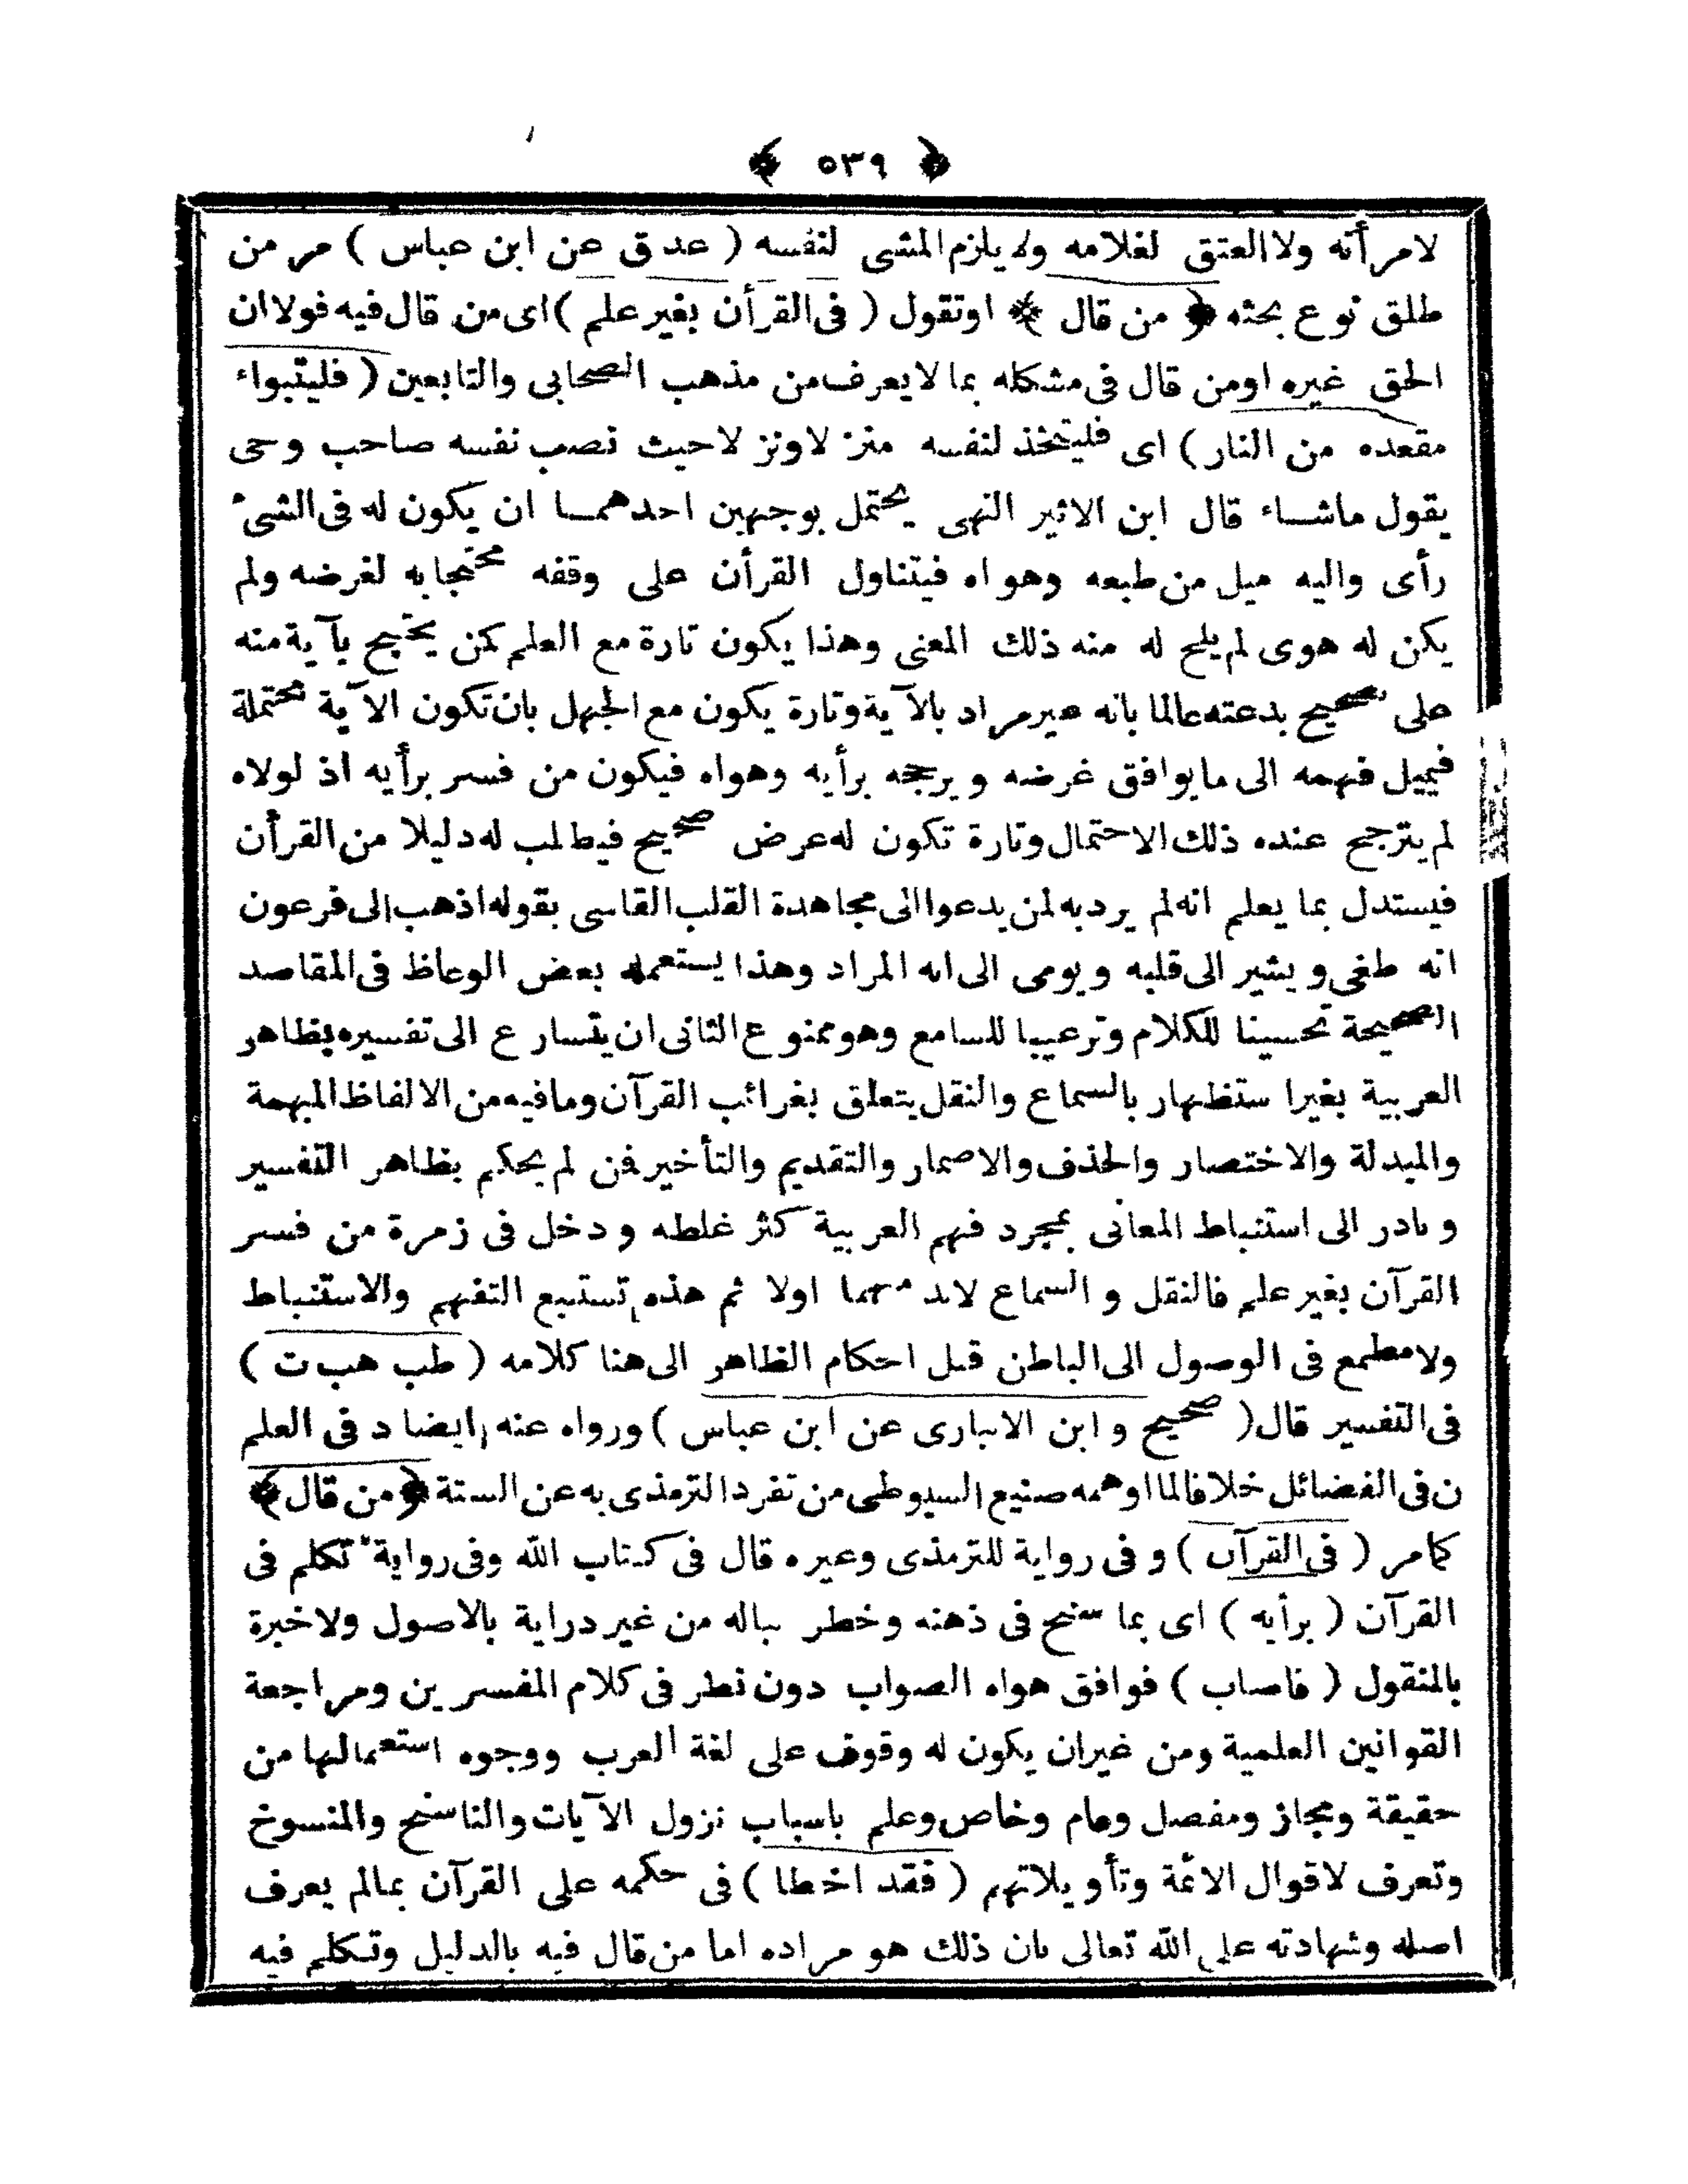 ﴿ ٥٣٩ ﴾
لامرأته ولا العتق لغلامه ولا يلزم المشى لنفسه ( عد ق عن ابن عباس ) مر من
طلق نوع بحثه ﴿ من قال ﴾ او تقول ( فى القرأن بغير علم ) اى من قال فيه قولا ان
الحق غيره او من قال فى مشكله بما لا يعرف من مذهب الصحابى والتابعين ( فليتبواء
مقعده من النار ) اى فليتخذ لنفسه منزلا ونزلا حيث نصب نفسه صاحب وحى
يقول ماشاء قال ابن الاثير النهى يحتمل بوجهين احدهما ان يكون له فى الشئ
رأى واليه ميل من طبعه وهواه فيتناول القرأن على وقفه محتجا به لغرضه ولم
يكن له هوى لم يلح له منه ذلك المعنى وهذا يكون تارة مع العلم كمن يحتج بآية منه
على صحيح بدعته عالما بانه غير مراد بالآية وتارة يكون مع الجهل بان تكون الآية محتملة
فيميل فهمه الى ما يوافق غرضه ويرجحه برأيه وهواه فيكون من فسر برأيه اذ لولاه
لم يترجح عنده ذلك الاحتمال وتارة تكون له عرض صحيح فيطلب له دليلا من القرأن
فيستدل بما يعلم انه لم يرد به لمن يدعوا الى مجاهدة القلب القاسى بقوله اذهب الى فرعون
انه طغى ويشير الى قلبه ويومى الى انه المراد وهذا يستعمله بعض الوعاظ فى المقاصد
الصحيحة تحسينا للكلام وترغيبا للسامع وهو ممنوع الثانى ان يتسارع الى تفسيره بظاهر
العربية بغير استظهار بالسماع والنقل يتعلق بغرائب القرآن ومافيه من الالفاظ المبهمة
والمبدلة والاختصار والحذف والاضمار والتقديم والتأخير فمن لم يحكم بظاهر التفسير
وبادر الى استنباط المعانى بمجرد فهم العربية كثر غلطه ودخل فى زمرة من فسر
القرآن بغير علم فالنقل و السماع لابد منهما اولا ثم هذه تستتبع التفهم والاستنباط
ولا مطمع فى الوصول الى الباطن قبل احكام الظاهر الى هنا كلامه ( طب هب ت )
فى التفسير قال ( صحيح و ابن الانبارى عن ابن عباس ) ورواه عنه ايضا د فى العلم
ن فى الفضائل خلافا لما اوهمه صنيع السيوطى من تفرد الترمذى به عن الستة ﴿ من قال ﴾
كمامر ( فى القرآن ) و فى رواية للترمذى وغيره قال فى كتاب الله وفى رواية تكلم فى
القرآن ( برأيه ) اى بما سنح فى ذهنه وخطر بباله من غير دراية بالاصول ولاخبرة
بالمنقول ( فاصاب ) فوافق هواه الصواب دون نظر فى كلام المفسرين ومراجعة
القوانين العلمية ومن غيران يكون له وقوف على لغة العرب ووجوه استعمالها من
حقيقة ومجاز ومفصل وعام وخاص وعلم باسباب نزول الآيات والناسخ والمنسوخ
وتعرف لاقوال الائمة وتأويلاتهم ( فقد اخطا ) فى حكمه على القرآن بمالم يعرف
اصله وشهادته على الله تعالى بان ذلك هو مراده اما من قال فيه بالدليل وتكلم فيه